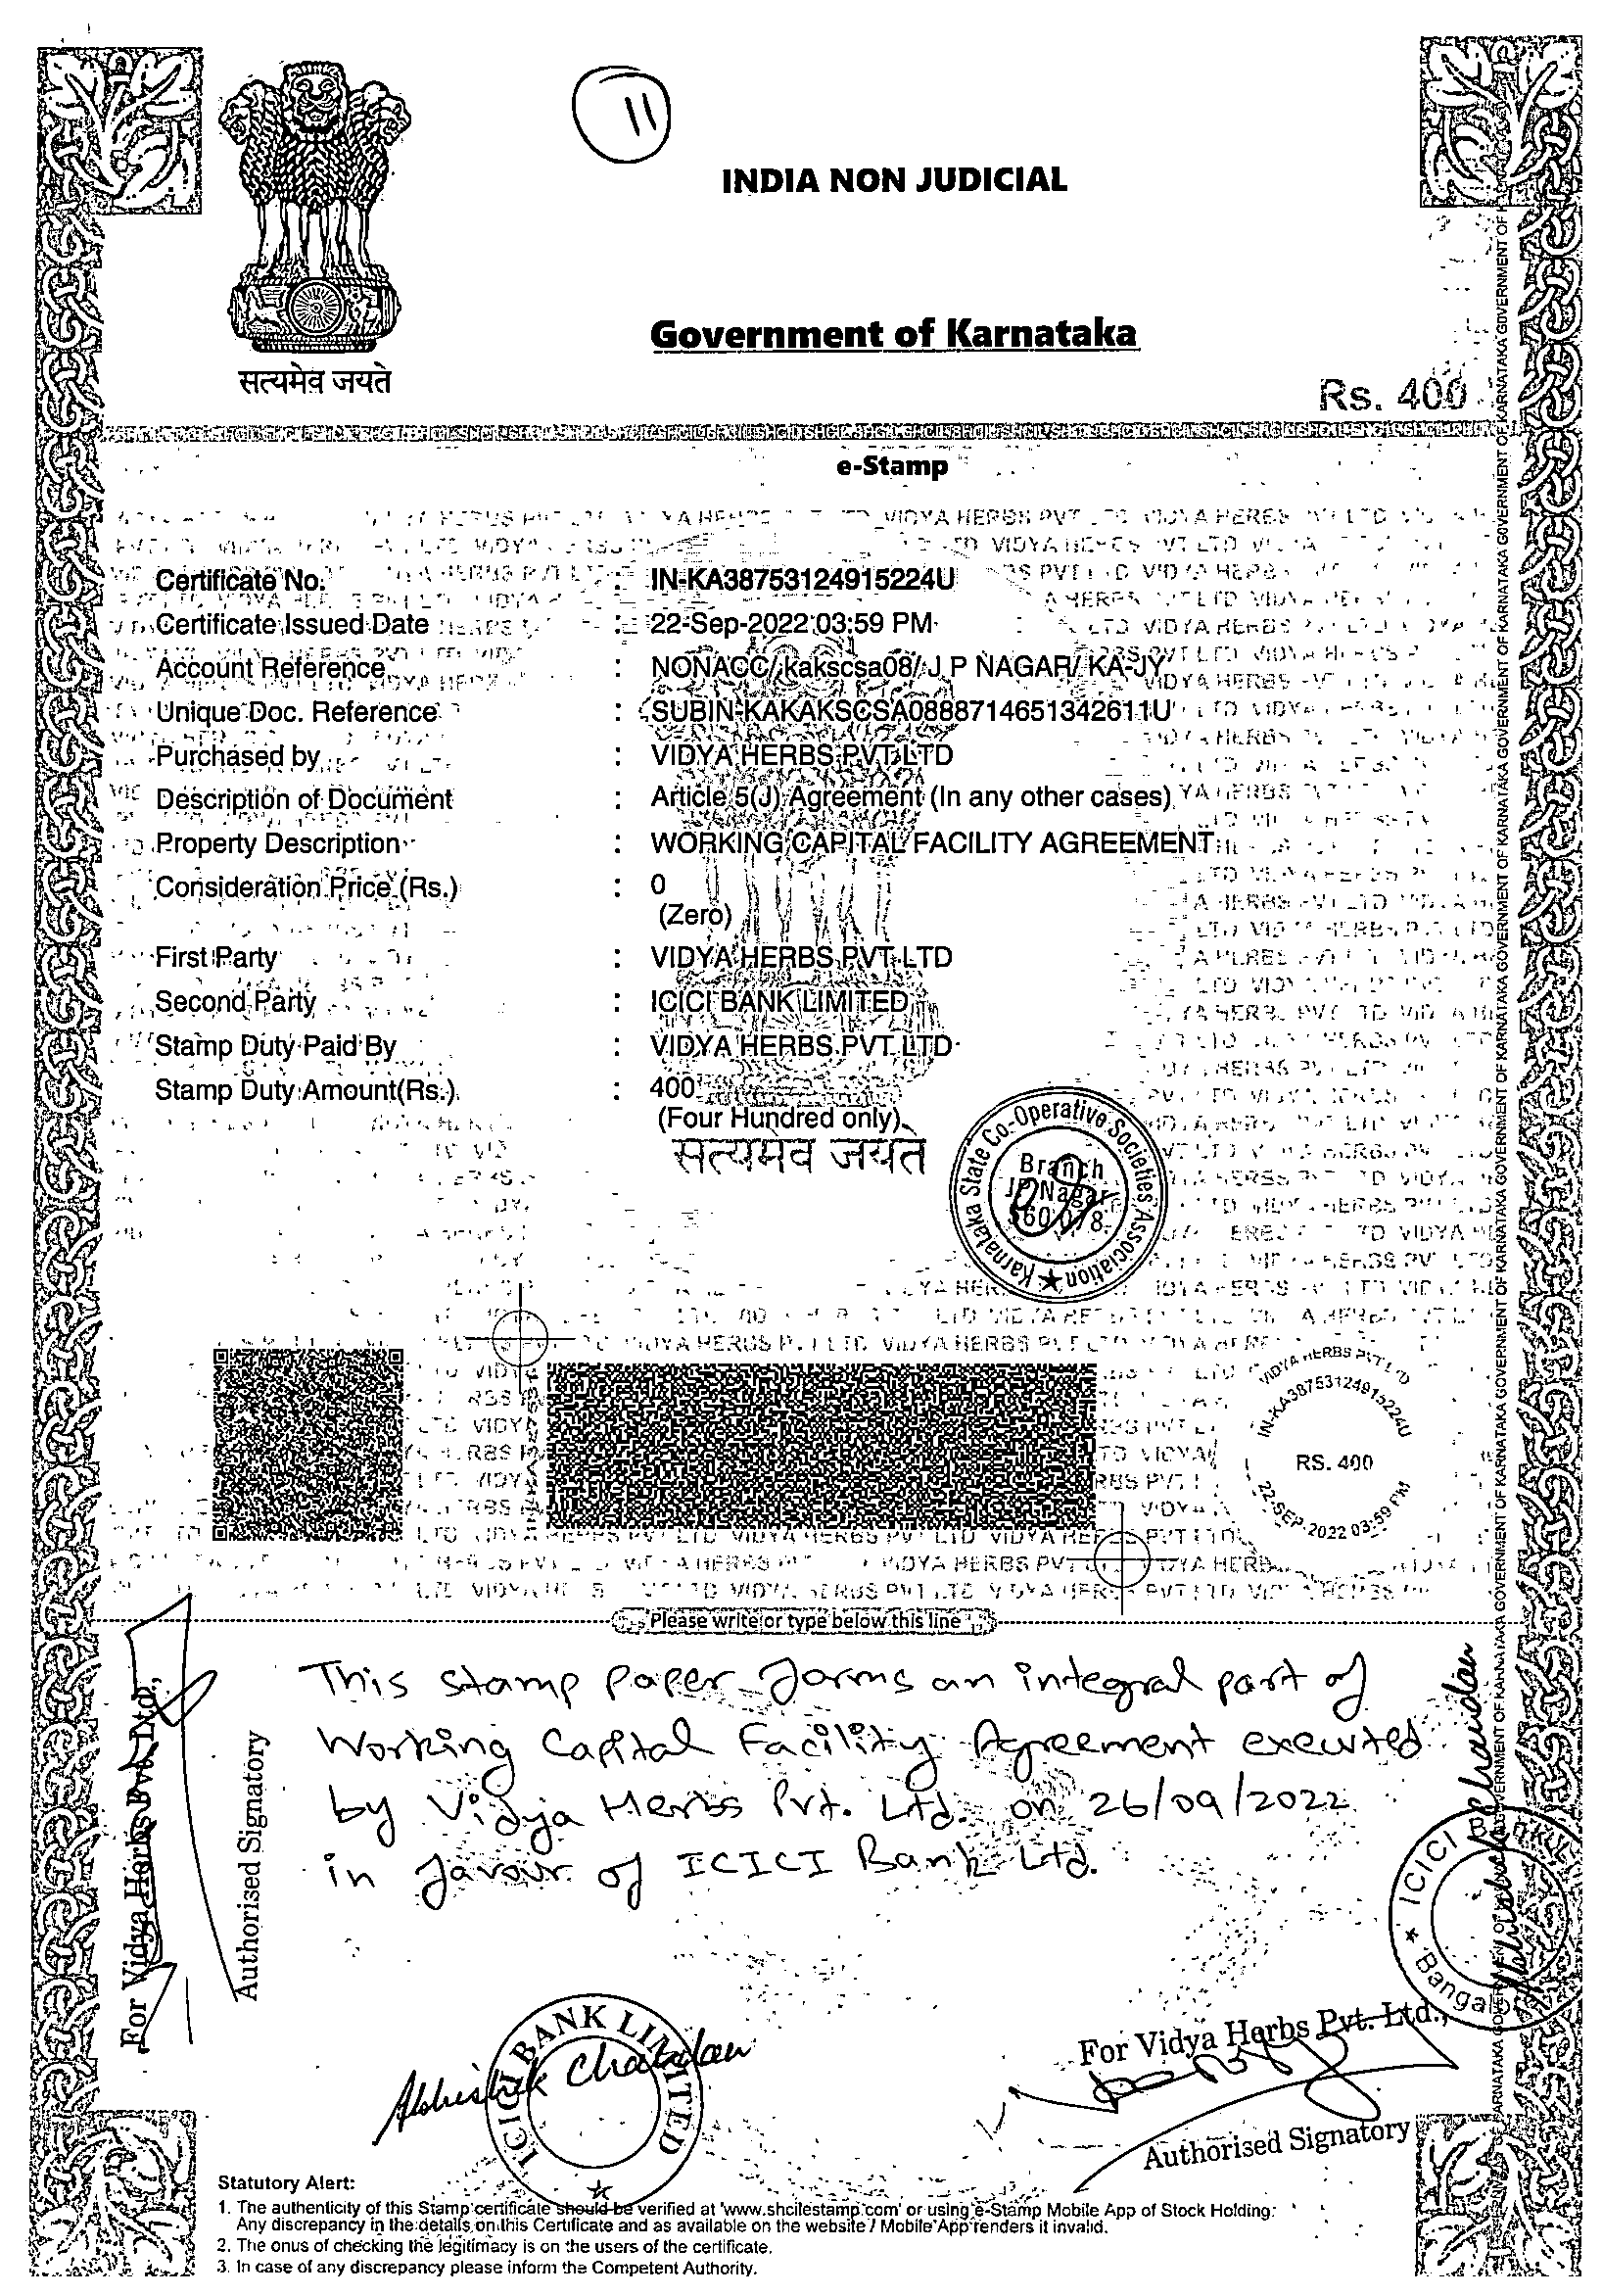 11
INDIA NON JUDICIAL
Government of Karnataka
सत्यमेव जयते
Rs. 400
e-Stamp
Certificate No. : IN-KA38753124915224U
Certificate Issued Date : 22-Sep-2022 03:59 PM
Account Reference : NONACC/ kakscsa08/ J P NAGAR/ KA-JY
Unique Doc. Reference : SUBIN-KAKAKSCSA0888714651342611U
Purchased by : VIDYA HERBS PVT LTD
Description of Document : Article 5(J) Agreement (In any other cases)
Property Description : WORKING CAPITAL FACILITY AGREEMENT
Consideration Price (Rs.) : 0
(Zero)
First Party : VIDYA HERBS PVT LTD
Second Party : ICICI BANK LIMITED
Stamp Duty Paid By : VIDYA HERBS PVT LTD
Stamp Duty Amount(Rs.) : 400
(Four Hundred only)
सत्यमेव जयते
Karnataka State Co-Operative Societies Association
Branch
JP Nagar
560 078
VIDYA HERBS PVT LTD
IN-KA38753124915224U
RS. 400
22-SEP-2022 03:59 PM
Please write or type below this line
This stamp paper forms an integral part of
Working Capital Facility Agreement executed
by Vidya Herbs Pvt. Ltd. on 26/09/2022
in favour of ICICI Bank Ltd.
For Vidya Herbs Pvt. Ltd.,
Authorised Signatory
ICICI Bank
Bangalore
ICICI BANK LIMITED
Abhishek
For Vidya Herbs Pvt. Ltd.,
Authorised Signatory
Statutory Alert:
1. The authenticity of this Stamp certificate should be verified at 'www.shcilestamp.com' or using e-Stamp Mobile App of Stock Holding.
Any discrepancy in the details on this Certificate and as available on the website / Mobile App renders it invalid.
2. The onus of checking the legitimacy is on the users of the certificate.
3. In case of any discrepancy please inform the Competent Authority.